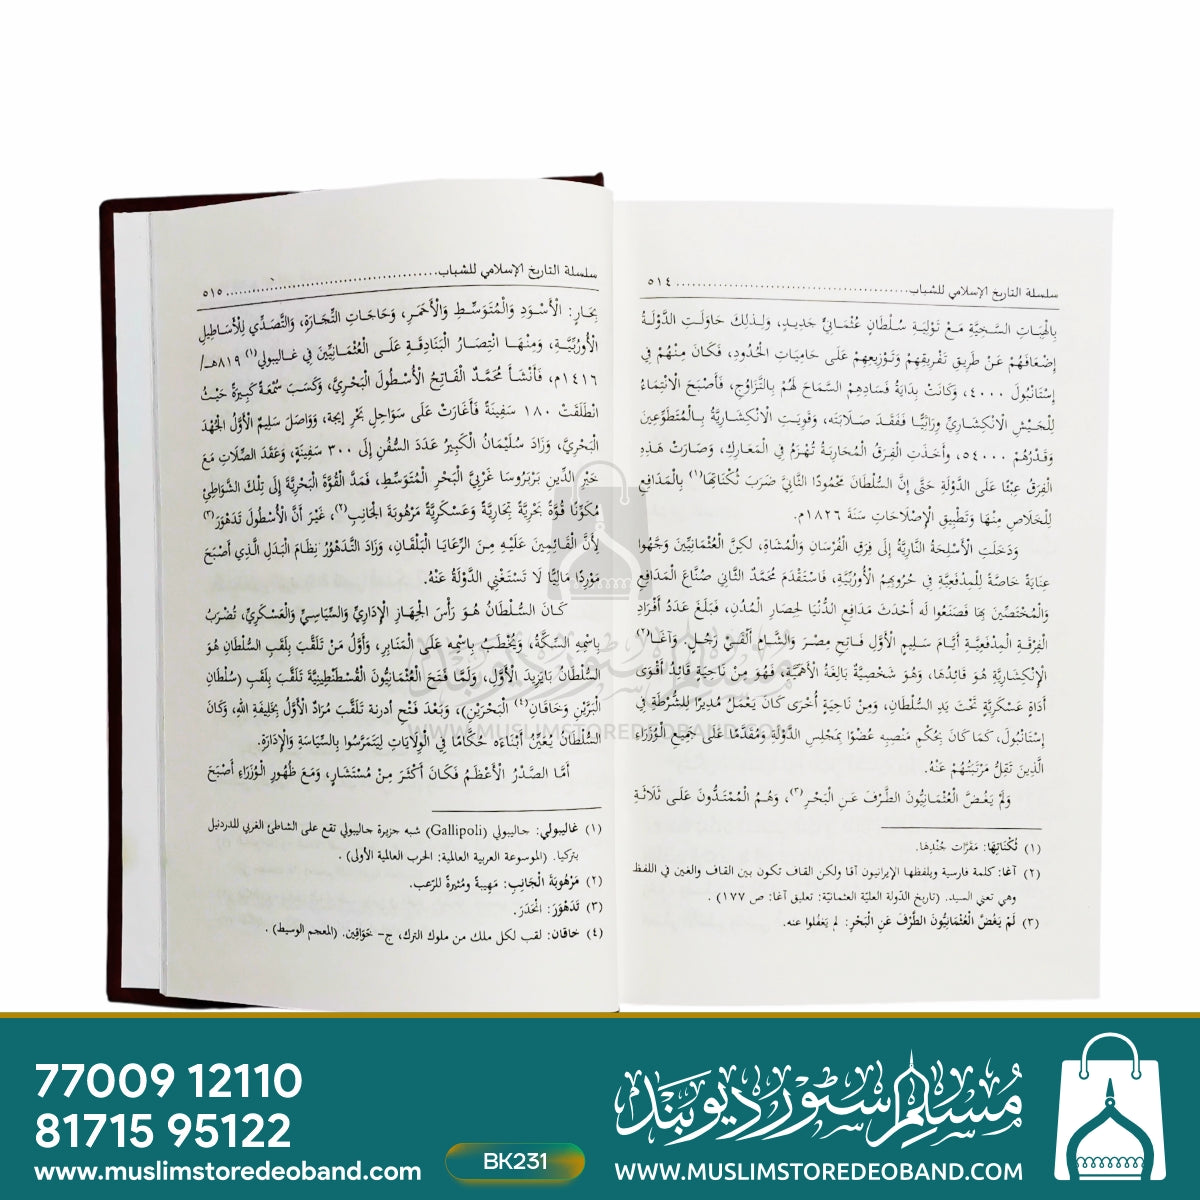 سلسلة التاريخ الإسلامي للشباب ........................................ ٥١٤
بِالْهِبَاتِ السَّخِيَّةِ مَعْ تَوْلِيَةِ سُلْطَانٍ عُثْمَانِيٍّ جَدِيدٍ، وَلِذلِكَ حَاوَلَتِ الدَّوْلَةُ
إِضْعَافَهُمْ عَنْ طَرِيقِ تَفْرِيقِهِمْ وَتَوْزِيعِهِمْ عَلَى حَامِيَاتِ الْحُدُودِ، فَكَانَ مِنْهُمْ فِي
إِسْتَانْبُولَ ٤٠٠٠، وَكَانَتْ بِدَايَةُ فَسَادِهِمْ السَّمَاحَ لَهُمْ بِالتَّزَاوُجِ، فَأَصْبَحَ الْانْتِمَاءُ
لِلْجَيْشِ الْانْكِشَارِيِّ وِرَاثِيًّا فَفَقَدَ صَلَابَتَه، وَقَوِيَتِ الْانْكِشَارِيَّةُ بِالْمُتَطَوِّعِينَ
وَقَدْرُهُمْ ٥٤٠٠٠، وأَخَذَتِ الْفِرَقُ الْمُحَارِبَةُ تُهْزَمُ فِي الْمَعَارِكِ، وَصَارَتْ هَذِهِ
الْفِرَقُ عِبْئًا عَلَى الدَّوْلَةِ حَتَّى إِنَّ السُّلْطَانَ مَحْمُودًا الثَّانِيَّ ضَرَبَ ثُكْنَاتِهَا(١) بِالْمَدَافِعِ
لِلْخَلَاصِ مِنْهَا وَتَطْبِيقِ الْإِصْلَاحَاتِ سَنَةَ ١٨٢٦م.
وَدَخَلَتِ الْأَسْلِحَةُ النَّارِيَّةُ إِلَى فِرَقِ الْفُرْسَانِ وَالْمُشَاةِ، لَكِنَّ الْعُثْمَانِيِّينَ وَجَّهُوا
عِنَايَةً خَاصَّةً لِلْمِدْفَعِيَّةِ فِي حُرُوبِهِمُ الْأُورُبِّيَّةِ، فَاسْتَقْدَمَ مُحَمَّدٌ الثَّانِي صُنَّاعَ الْمَدَافِعِ
وَالْمُخْتَصِّينَ بِهَا فَصَنَعُوا لَه أَحْدَثَ مَدَافِعِ الدُّنْيَا لِحِصَارِ الْمُدُنِ، فَبَلَغَ عَدَدُ أَفْرَادِ
الْفِرْقَةِ الْمِدْفَعِيَّةِ أَيَّامَ سَلِيمٍ الْأَوَّلِ فَاتِحِ مِصْرَ وَالشَّامِ أَلْفَيْ رَجُلٍ، وَآغَا(٢)
الْإِنْكِشَارِيَّةِ هُوَ قَائِدُهَا، وَهُوَ شَخْصِيَّةٌ بَالِغَةُ الْأَهَمِّيَّةِ، فَهُوَ مِنْ نَاحِيَةٍ قَائِدُ أَقْوَى
أَدَاةٍ عَسْكَرِيَّةٍ تَحْتَ يَدِ السُّلْطَانِ، وَمِنْ نَاحِيَةٍ أُخْرَى كَانَ يَعْمَلُ مُدِيرًا لِلشُّرْطَةِ فِي
إِسْتَانْبُولَ، كَمَا كَانَ بِحُكْمِ مَنْصِبِهِ عُضْوًا بِمَجْلِسِ الدَّوْلَةِ وَمُقَدَّمًا عَلَى جَمِيْعِ الْوُزَرَاءِ
الَّذِينَ تَقِلُّ مَرْتَبَتُهُمْ عَنْهُ.
وَلَمْ يَغُضَّ الْعُثْمَانِيُّونَ الطَّرْفَ عَنِ الْبَحْرِ(٣)، وَهُمُ الْمُمْتَدُّونَ عَلَى ثَلَاثَةِ
(١) ثُكْنَاتِهَا: مَقَرَّات جُنْدِهَا.
(٢) آغَا: كلمة فارسية ويلفظها الإيرانيون آقا ولكن القاف تكون بين القاف والغين في اللفظ
وهي تعني السيد. (تاريخ الدّولة العليّة العثمانيّة: تعليق آغا: ص ١٧٧) .
(٣) لَمْ يَغُضَّ الْعُثْمَانِيُّونَ الطَّرْفَ عَنِ الْبَحْرِ: لم يَغفُلوا عنه.
سلسلة التاريخ الإسلامي للشباب ........................................ ٥١٥
بِحَارٍ: الْأَسْوَدِ وَالْمُتَوَسِّطِ وَالْأَحْمَرِ، وَحَاجَاتِ التِّجَارَةِ، وَالتَّصَدِّي لِلْأَسَاطِيلِ
الْأُورُبِّيَّةِ، وَمِنْهَا انْتِصَارُ الْبَنَادِقَةِ عَلَى الْعُثْمَانِيِّينَ فِي غَالِيبولي(١) ٨١٩هـ/
١٤١٦م، فَأَنْشَأَ مُحَمَّدٌ الْفَاتِحُ الْأُسْطُولَ الْبَحْرِيَّ، وَكَسَبَ سُمْعَةً كَبِيرَةً حَيْثُ
انْطَلَقَتْ ١٨٠ سَفِينَةً فَأَغَارَتْ عَلَى سَوَاحِلِ بَحْرِ إيجة، وَوَاصَلَ سَلِيمٌ الْأَوَّلُ الْجُهْدَ
الْبَحْرِيَّ، وَزَادَ سُلَيْمَانُ الْكَبِيرُ عَدَدَ السُّفُنِ إِلَى ٣٠٠ سَفِينَةٍ، وَعَقَدَ الصِّلَاتِ مَعَ
خَيْرِ الدِّينِ بَرْبَرُوسَا غَرْبِيَّ الْبَحْرِ الْمُتَوَسِّطِ، فَمَدَّ الْقُوَّةَ الْبَحْرِيَّةَ إِلَى تِلْكَ الشَّوَاطِئِ
مُكَوِّنًا قُوَّةً بَحْرِيَّةً تِجَارِيَّةً وَعَسْكَرِيَّةً مَرْهُوبَةَ الْجَانِبِ(٢)، غَيْرَ أَنَّ الْأُسْطُولَ تَدَهْوَرَ(٣)
لِأَنَّ الْقَائِمِينَ عَلَيْهِ مِنَ الرَّعَايَا الْبَلْقَانِ، وَزَادَ التَّدَهْوُرُ نِظَامَ الْبَدَلِ الَّذِي أَصْبَحَ
مَوْرِدًا مَالِيًّا لَا تَسْتَغْنِي الدَّوْلَةُ عَنْهُ.
كَانَ السُّلْطَانُ هُوَ رَأْسَ الْجِهَازِ الْإِدَارِيِّ وَالسِّيَاسِيِّ وَالْعَسْكَرِيِّ، تُضْرَبُ
بِاسْمِهِ السِّكَّةُ، وَيُخْطَبُ بِاسْمِهِ عَلَى الْمَنَابِرِ، وَأَوَّلُ مَنْ تَلَقَّبَ بِلَقَبِ السُّلْطَانِ هُوَ
السُّلْطَانُ بَايَزِيدَ الْأَوَّلِ، وَلَمَّا فَتَحَ الْعُثْمَانِيُّونَ الْقُسْطَنْطِينِيَّةَ تَلَقَّبَ بِلَقَبِ (سُلْطَانِ
الْبَرَّيْنِ وَخَاقَانِ(٤) الْبَحْرَيْنِ)، وَبَعْدَ فَتْحِ أدرنة تَلَقَّبَ مُرَادٌ الْأَوَّلُ بِخَلِيفَةِ اللهِ، وَكَانَ
السُّلْطَانُ يُعَيِّنُ أَبْنَاءَه حُكَّامًا فِي الْوِلَايَاتِ لِيَتَمَرَّسُوا بِالسِّيَاسَةِ وَالْإِدَارَةِ.
أَمَّا الصَّدْرُ الْأَعْظَمُ فَكَانَ أَكْثَرَ مِنْ مُسْتَشَارٍ، وَمَعَ ظُهُورِ الْوُزَرَاءِ أَصْبَحَ
(١) غَاليبولي: جاليبولي (Gallipoli) شبه جزيرة جاليبولي تقع على الشاطئ الغربي للدردنيل
بتركيا. (الموسوعة العربية العالمية: الحرب العالمية الأولى) .
(٢) مَرْهُوبَةَ الْجَانِبِ: مَهِيبةً ومُثيرةً للرّعب.
(٣) تَدَهْوَرَ: انْحَدَرَ.
(٤) خاقان: لقب لكل ملك من ملوك الترك، ج– خَوَاقِين. (المعجم الوسيط) .
مسلم سٹور دیوبند
WWW.MUSLIMSTOREDEOBAND.COM
77009 12110
81715 95122
www.muslimstoredeoband.com
BK231
مسلم سٹور دیوبند
WWW.MUSLIMSTOREDEOBAND.COM